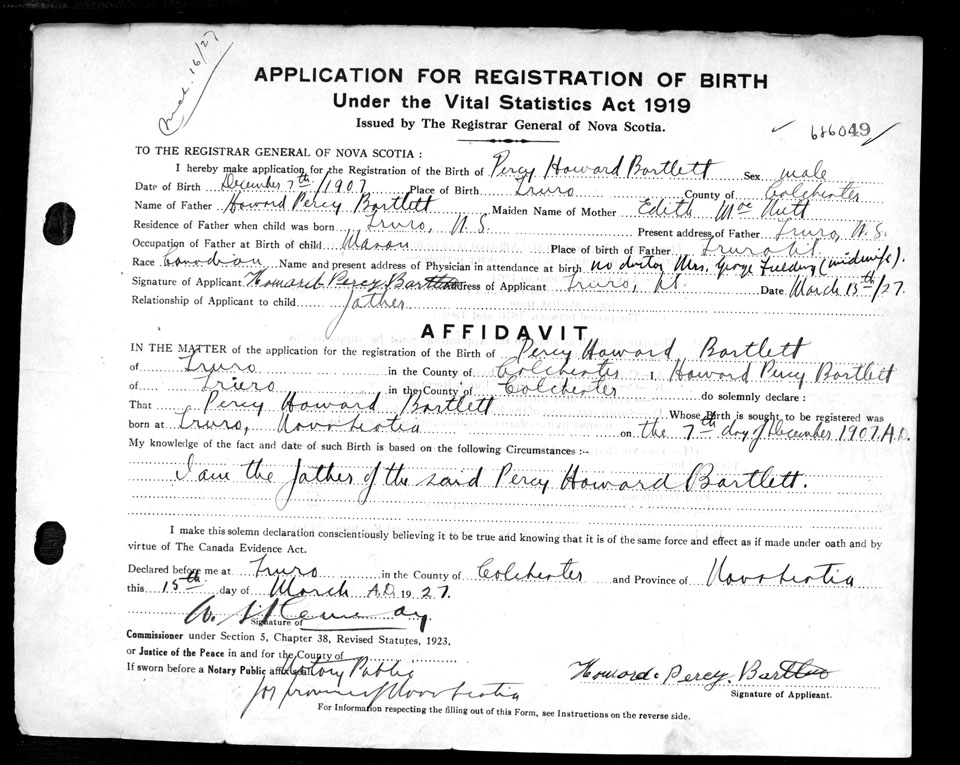 Mar. 16/27
APPLICATION FOR REGISTRATION OF BIRTH
Under the Vital Statistics Act 1919
Issued by The Registrar General of Nova Scotia.
✓ 686049
TO THE REGISTRAR GENERAL OF NOVA SCOTIA :
I hereby make application for the Registration of the Birth of Percy Howard Bartlett Sex male
Date of Birth December 7th/1907 Place of Birth Truro County of Colchester
Name of Father Howard Percy Bartlett Maiden Name of Mother Edith Mac Nutt
Residence of Father when child was born Truro, N.S. Present address of Father Truro, N.S.
Occupation of Father at Birth of child Mason Place of birth of Father Truro N.S.
Race Canadian Name and present address of Physician in attendance at birth no doctor Mrs. George Fielding (midwife).
Signature of Applicant Howard Percy Bartlett Address of Applicant Truro, N.S. Date March 15th/27.
Relationship of Applicant to child father
AFFIDAVIT
IN THE MATTER of the application for the registration of the Birth of Percy Howard Bartlett
of Truro in the County of Colchester I, Howard Percy Bartlett
of Truro in the County of Colchester do solemnly declare :
That Percy Howard Bartlett Whose Birth is sought to be registered was
born at Truro, Nova Scotia on the 7th day of December 1907 A.D.
My knowledge of the fact and date of such Birth is based on the following Circumstances :—
I am the father of the said Percy Howard Bartlett.
I make this solemn declaration conscientiously believing it to be true and knowing that it is of the same force and effect as if made under oath and by
virtue of The Canada Evidence Act.
Declared before me at Truro in the County of Colchester and Province of Nova Scotia
this 15th day of March A.D. 1927.
Signature of
Commissioner under Section 5, Chapter 38, Revised Statutes, 1923.
or Justice of the Peace in and for the County of
If sworn before a Notary Public affix seal Notary Public
for province of Nova Scotia
Howard Percy Bartlett
Signature of Applicant.
For Information respecting the filling out of this Form, see Instructions on the reverse side.